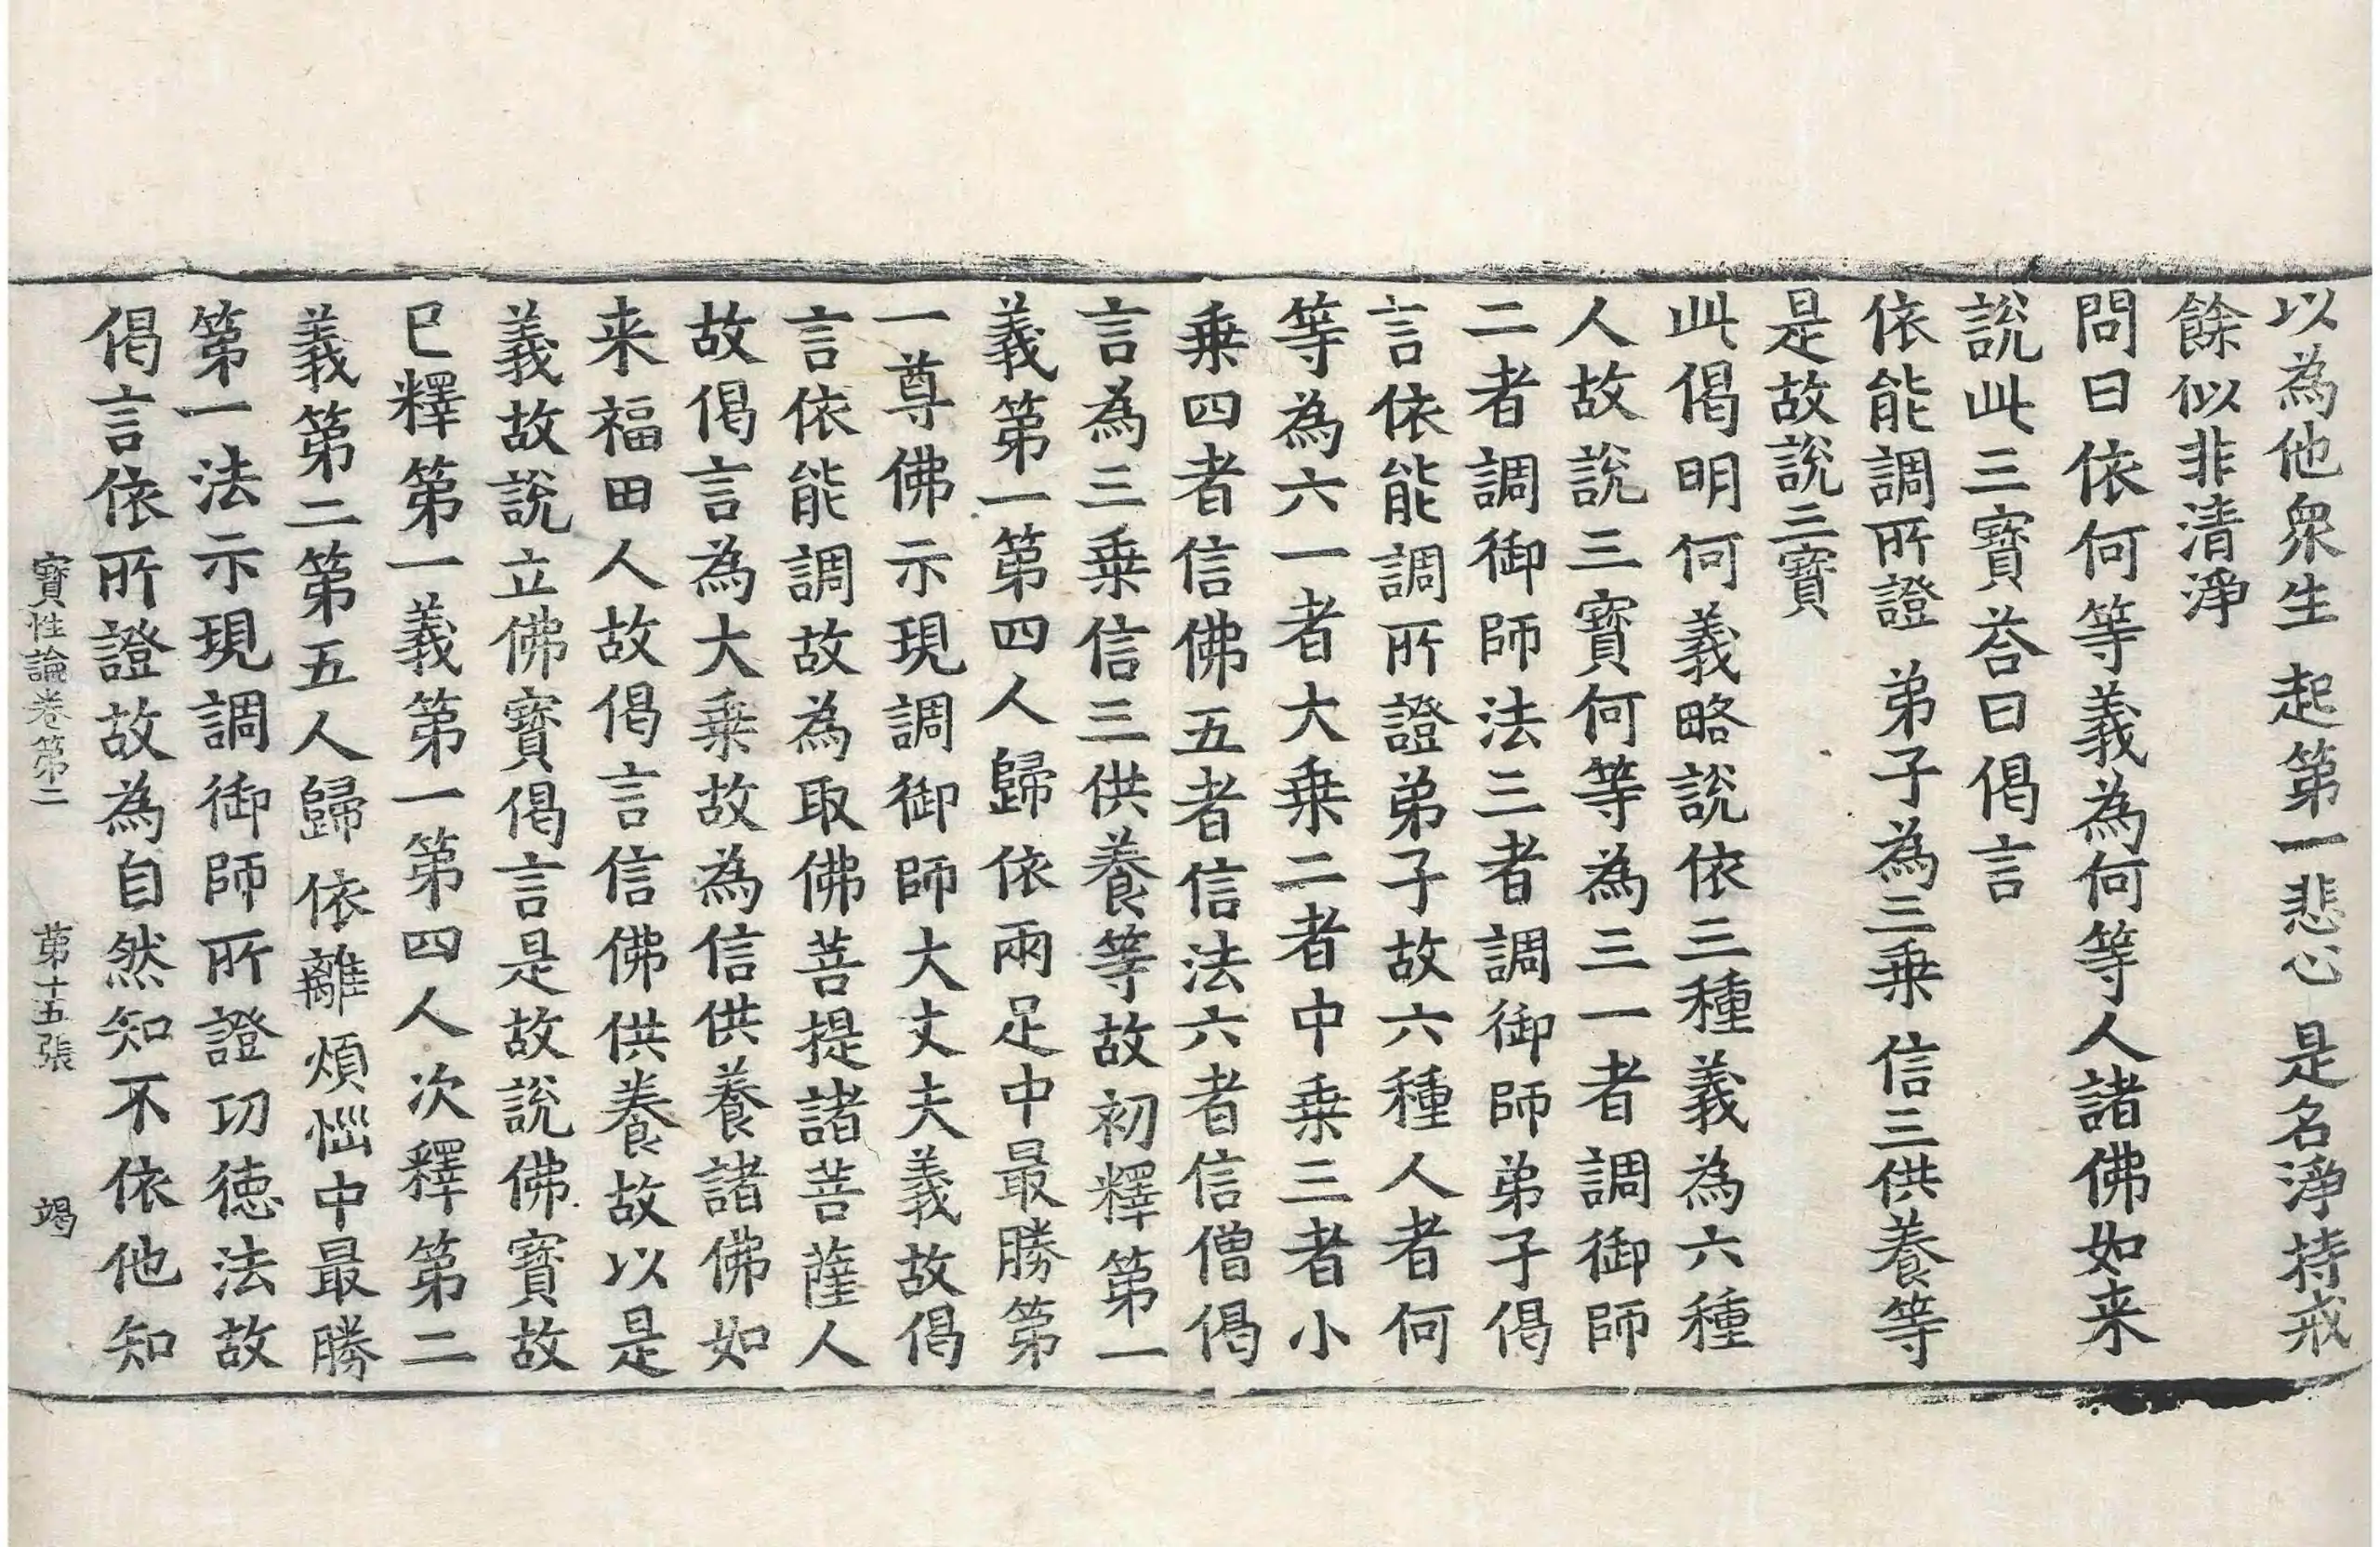 以為他眾生 起第一悲心 是名淨持戒
餘似非清淨
問曰依何等義為何等人諸佛如来
說此三寳荅曰偈言
依能調所證 弟子為三乗 信三供養等
是故說三寳
此偈明何義略說依三種義為六種
人故說三寳何等為三一者調御師
二者調御師法三者調御師弟子偈
言依能調所證弟子故六種人者何
等為六一者大乗二者中乗三者小
乗四者信佛五者信法六者信僧偈
言為三乗信三供養等故初釋第一
義第一第四人歸依兩足中最勝第
一尊佛示現調御師大丈夫義故偈
言依能調故為取佛菩提諸菩薩人
故偈言為大乗故為信供養諸佛如
来福田人故偈言信佛供養故以是
義故說立佛寳偈言是故說佛寳故
已釋第一義第一第四人次釋第二
義第二第五人歸依離煩惱中最勝
第一法示現調御師所證功徳法故
偈言依所證故為自然知不依他知
寳性論卷第二 第十五張 竭